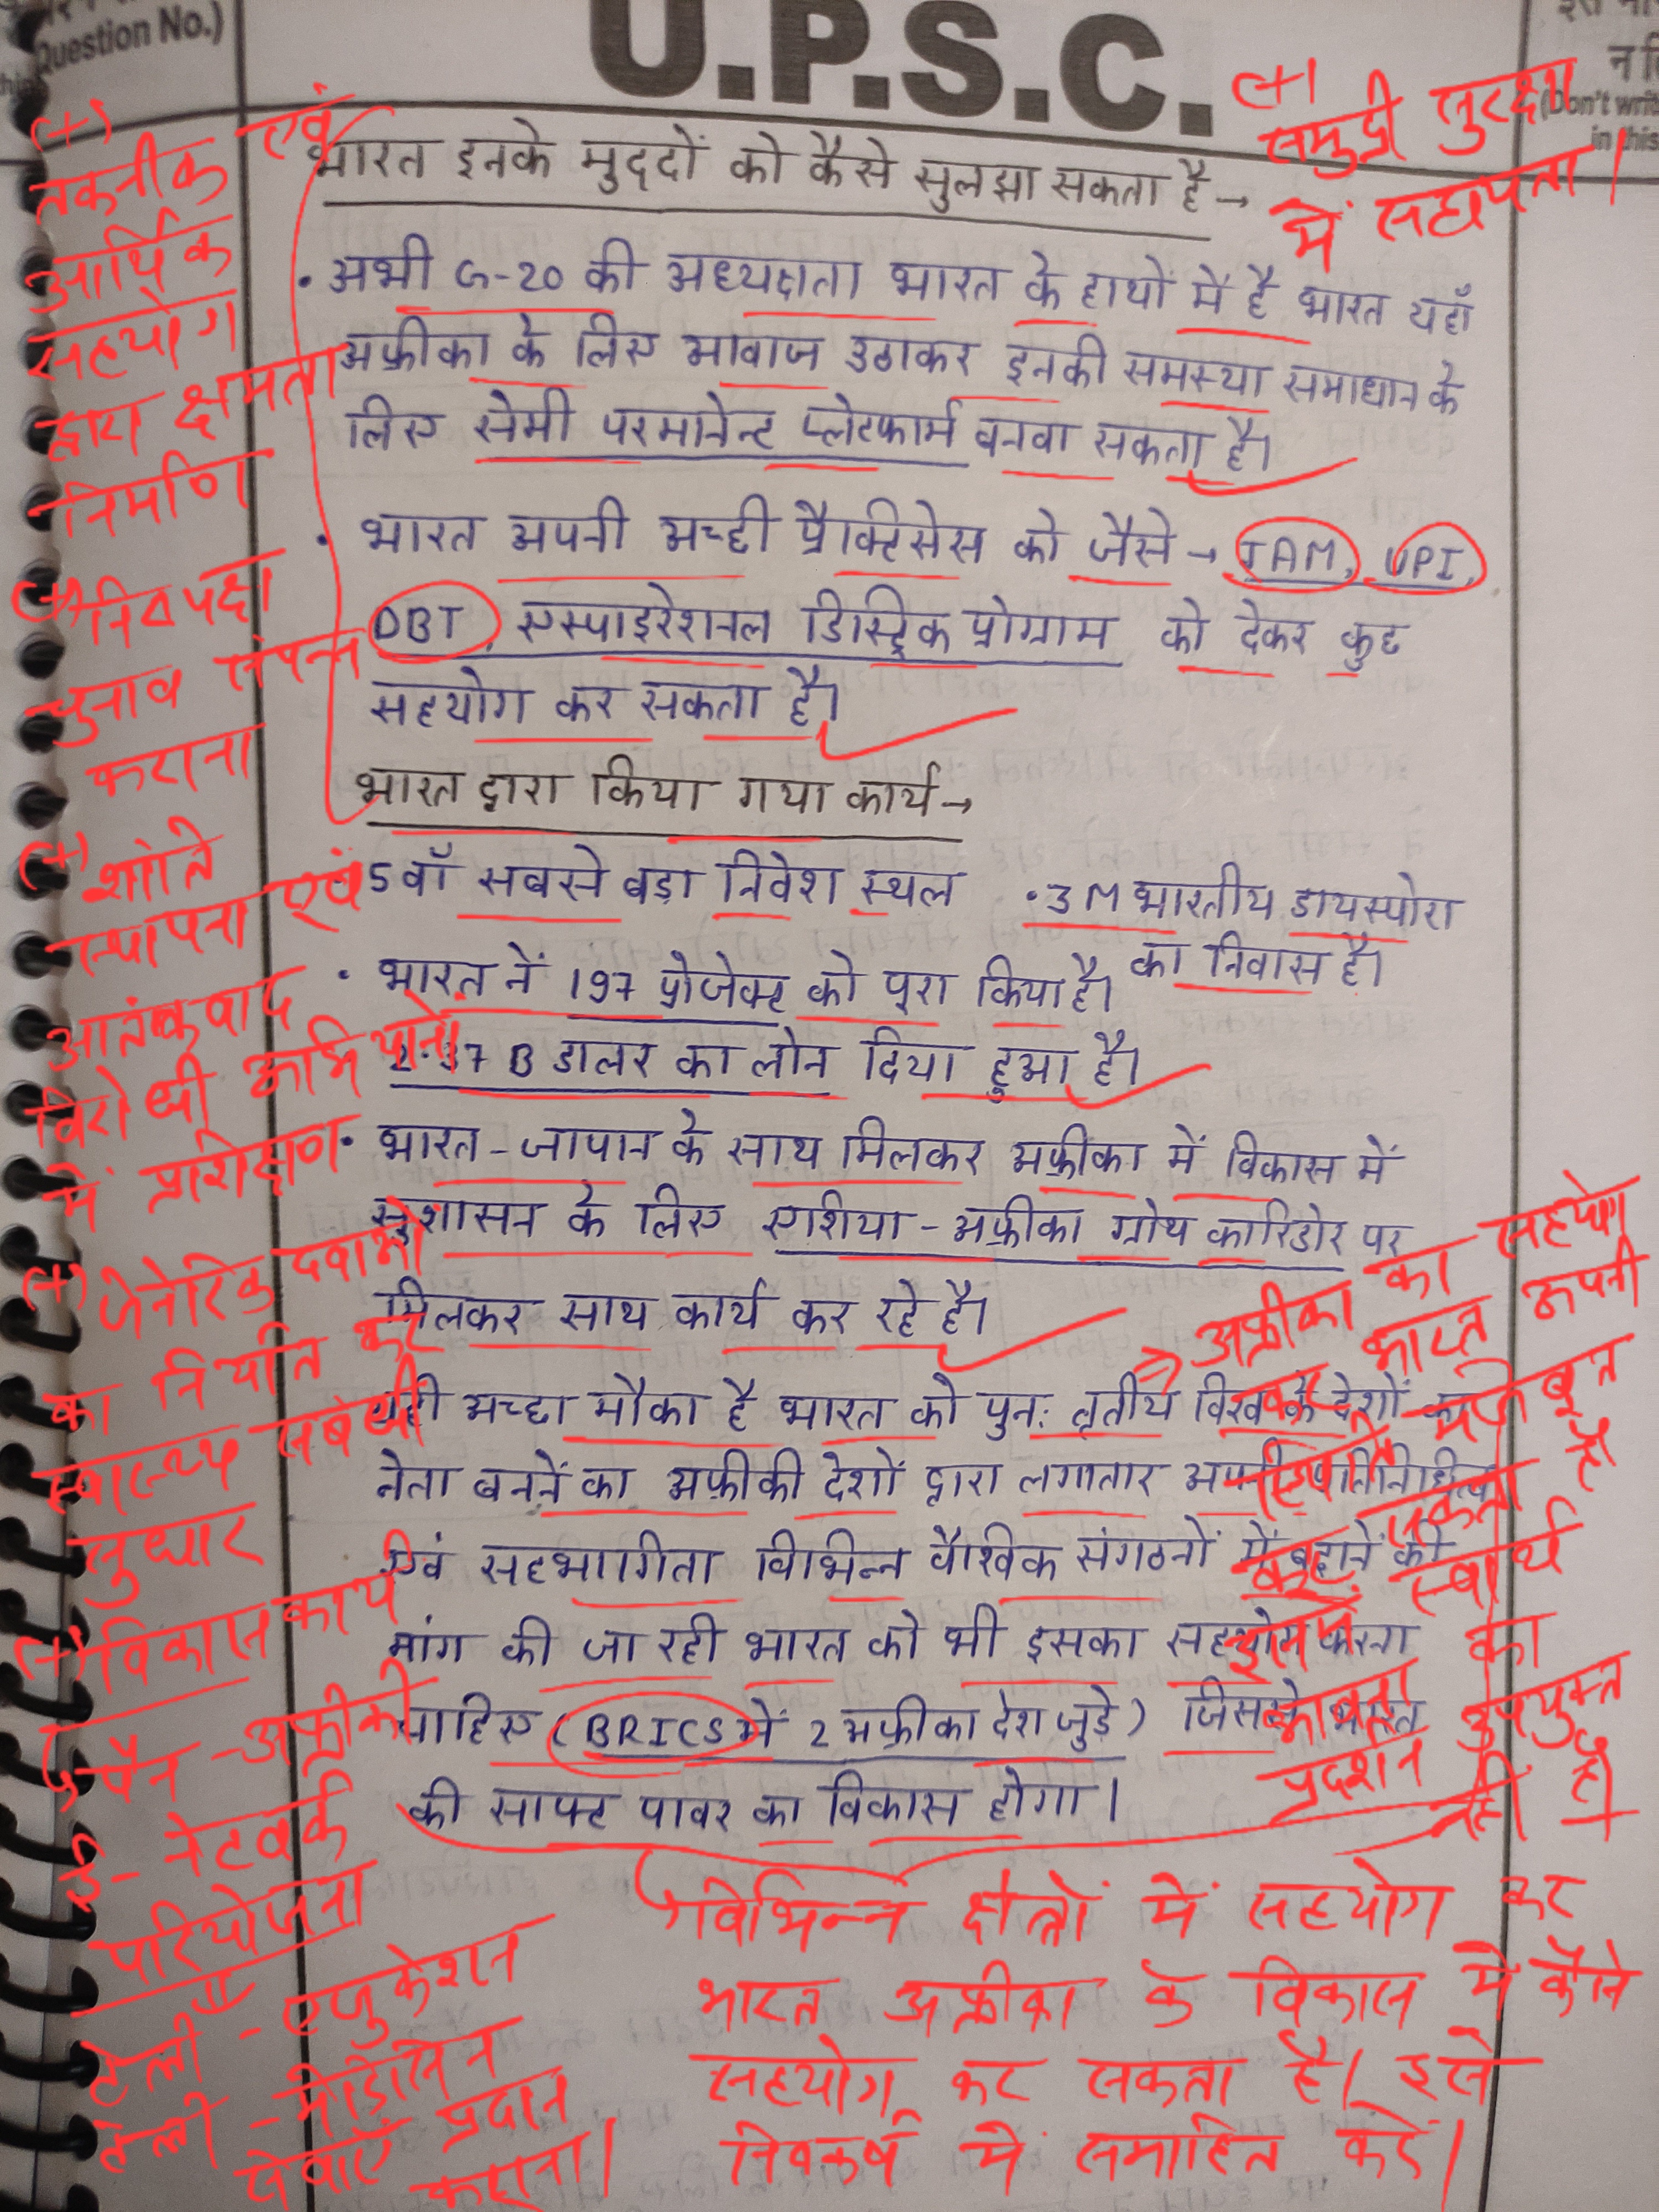 Question No.)
U.P.S.C.
(Don't writ
in this
भारत इनके मुद्दों को कैसे सुलझा सकता है →
• अभी G-20 की अध्यक्षता भारत के हाथों में है भारत यहाँ
अफ्रीका के लिए आवाज उठाकर इनकी समस्या समाधान के
लिए सेमी परमानेन्ट प्लेटफार्म बनवा सकता है।
• भारत अपनी अच्छी प्रैक्टिसेस को जैसे → JAM, UPI,
DBT, एस्पाइरेशनल डिस्ट्रिक प्रोग्राम को देकर कुछ
सहयोग कर सकता है।
भारत द्वारा किया गया कार्य →
5वाँ सबसे बड़ा निवेश स्थल • 3 M भारतीय डायस्पोरा
का निवास है।
• भारत नें 197 प्रोजेक्ट को पूरा किया है।
2.37 B डालर का लोन दिया हुआ है।
• भारत - जापान के साथ मिलकर अफ्रीका में विकास में
सुशासन के लिए एशिया - अफ्रीका ग्रोथ कारिडोर पर
मिलकर साथ कार्य कर रहे है।
यही अच्छा मौका है भारत को पुनः तृतीय विश्व के देशों का
नेता बननें का अफ्रीकी देशों द्वारा लगातार अपनी प्रतिनिधित्व
एवं सहभागिता विभिन्न वैश्विक संगठनों में बढ़ाने की
मांग की जा रही भारत को भी इसका सहयोग करना
चाहिए (BRICS में 2 अफ्रीका देश जुड़े) जिससे भारत
की साफ्ट पावर का विकास होगा।
(+)
तकनीक एवं
आर्थिक
सहयोग
द्वारा क्षमता
निर्माण
(+) निष्पक्ष
चुनाव संपन्न
कराना
(+) शांति
स्थापना एवं
आतंकवाद
विरोधी अभियानों
में प्रशिक्षण
(+) जेनेरिक दवाओं
का निर्यात कर
स्वास्थ्य संबंधी
सुधार
(+) विकास कार्य
पैन - अफ्रीकी
ई - नेटवर्क
परियोजना
टेली - एजुकेशन
टेली - मेडिसिन
सेवाएं प्रदान
कराना।
(+)
समुद्री सुरक्षा
में सहायता।
→ अफ्रीका का सहयोग
कर भारत अपनी
स्थिति मजबूत
कर सकता है
इसमें स्वार्थ
का
भावना
प्रदर्शन उपयुक्त
नहीं है।
विभिन्न क्षेत्रों में सहयोग कर
भारत अफ्रीका के विकास में कैसे
सहयोग कर सकता है। इसे
निष्कर्ष में समाहित करें।